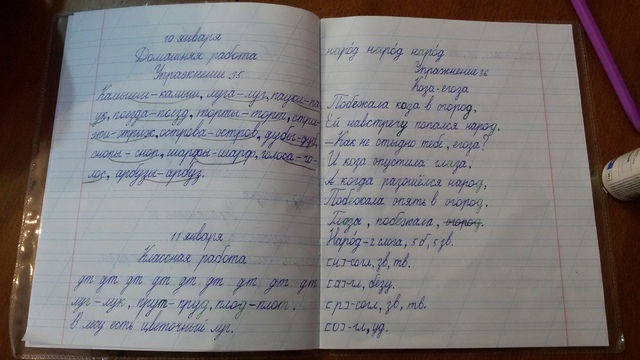 10 января
Домашняя работа
Упражнение 35
Камыши-камыш, луга-луг, пауки-па-
ук, поезда-поезд, торты-торт, стри-
жи-стриж, острова-остров, дубы-дуб,
снопы-сноп, шарфы-шарф, голоса-го-
лос, арбузы-арбуз.
11 января
Классная работа
дт дт дт дт дт дт дт дт дт
луг-лук, прут-пруд, плод-плот.
В лесу есть цветочный луг.
наро́д наро́д наро́д
Упражнение 36
Коза-егоза
Побежала коза в огород.
Ей навстречу попался народ.
-Как не стыдно тебе, егоза?
И коза опустила глаза.
А когда разошёлся народ,
Побежала опять в огород.
Глаза, побежала, огород.
Наро́д-2 слога, 5 б, 5 зв.
[н]-согл, зв, тв.
[а]-гл, безу.
[р]-согл, зв, тв.
[о]-гл, уд.